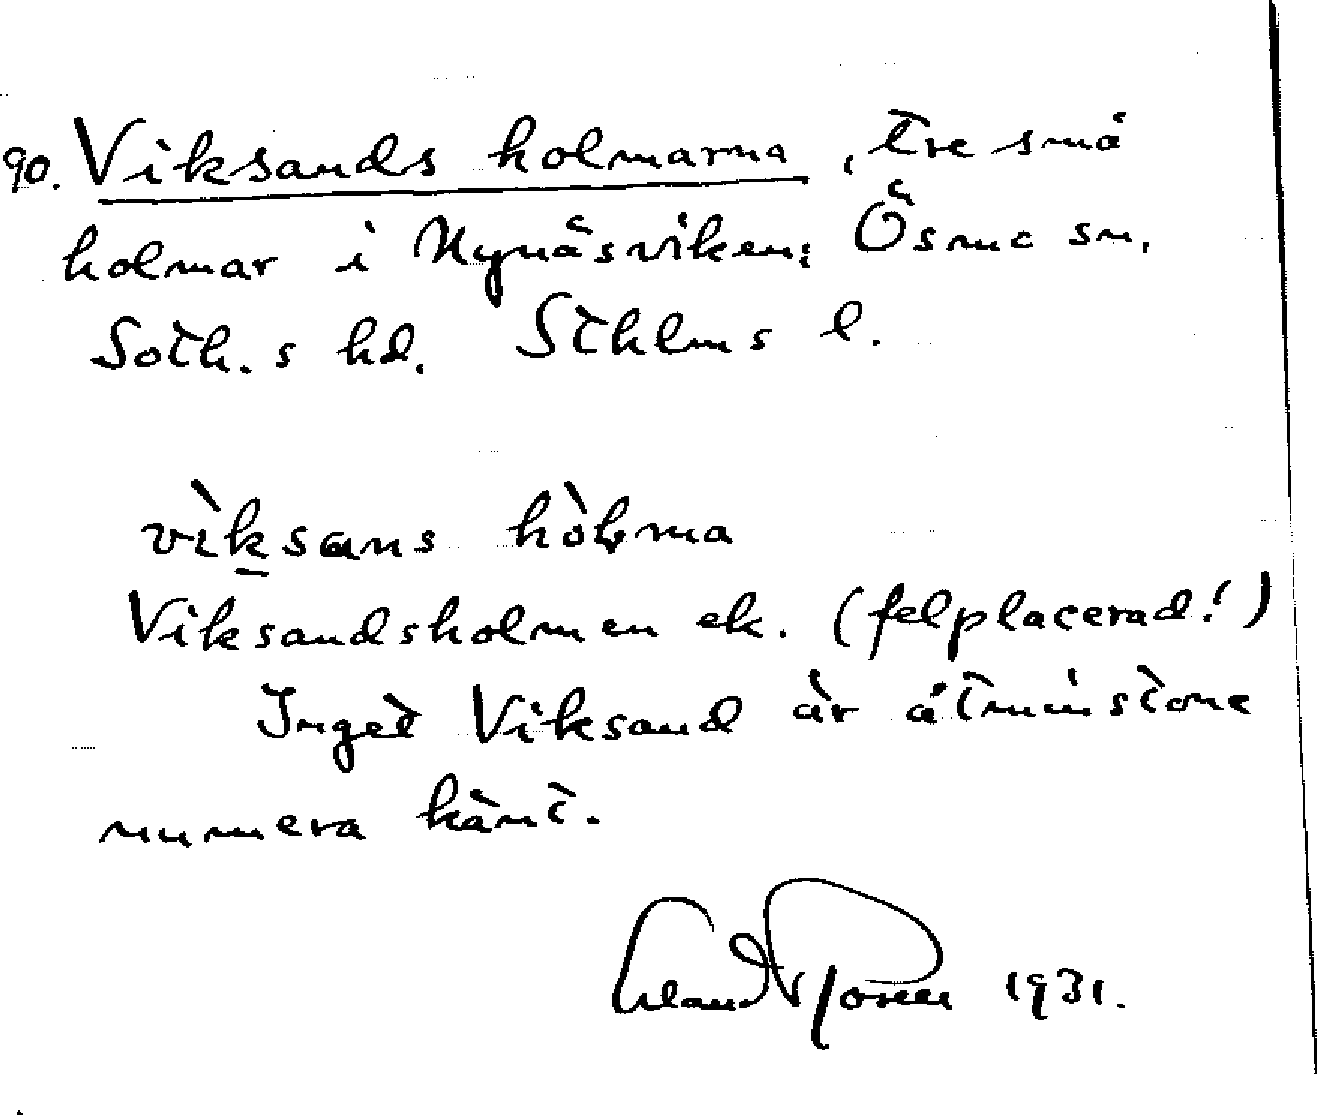 90. Viksands holmarna, tre små
holmar i Nynäsviken; Ösmo sn,
Soth.s hd. Sthlms l.
vìksans hòlma
Viksandsholmen ek. (felplacerad!)
Inget Viksand är åtminstone
numera känt.
1931.